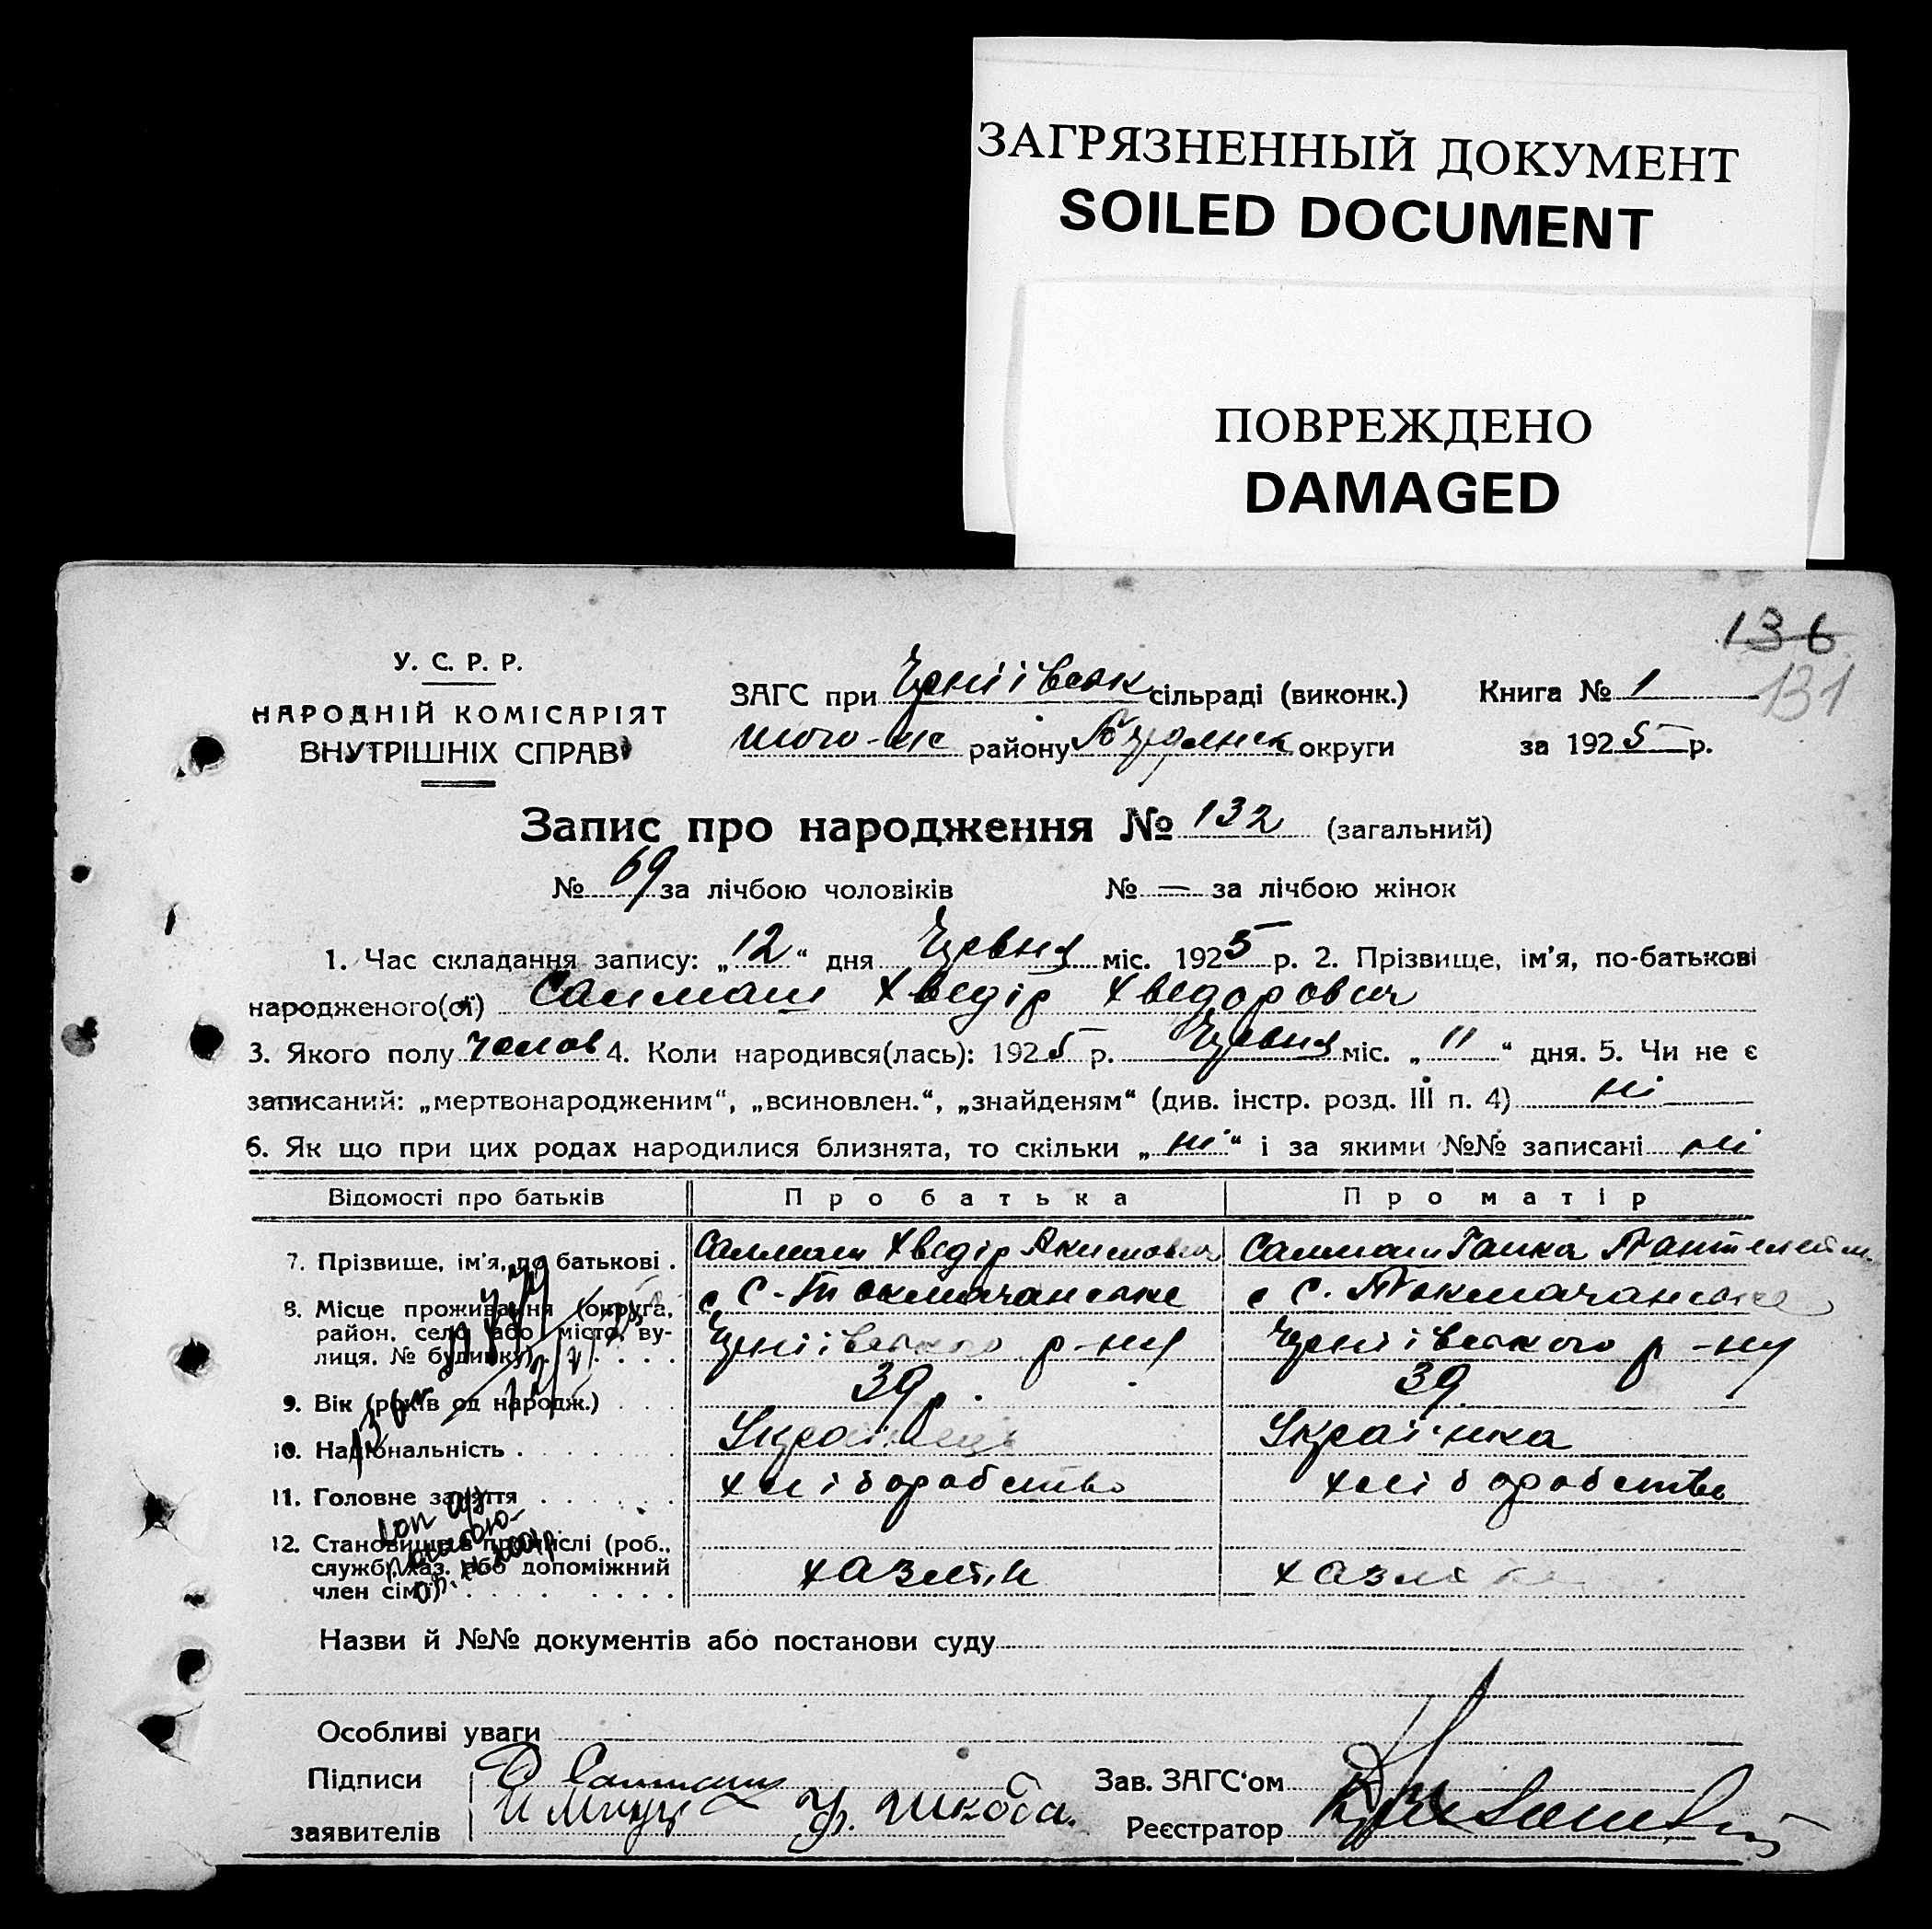 ЗАГРЯЗНЕННЫЙ ДОКУМЕНТ
SOILED DOCUMENT
ПОВРЕЖДЕНО
DAMAGED
136
131
У. С. Р. Р.
НАРОДНІЙ КОМІСАРІЯТ
ВНУТРІШНІХ СПРАВ
ЗАГС при сільраді (виконк.)
району округи
Книга № 1
за 1925 р.
Запис про народження № 132 (загальний)
№ 69 за лічбою чоловіків № — за лічбою жінок
1. Час складання запису: „12“ дня Червня міс. 1925 р. 2. Прізвище, ім'я, по-батькові
народженого(ої) Салмаш Хведір Хведорович
3. Якого полу чолов 4. Коли народився(лась): 1925 р. Червня міс. „11“ дня. 5. Чи не є
записаний: „мертвонародженим“, „всиновлен.“, „знайденям“ (див. інстр. розд. III п. 4) ні
6. Як що при цих родах народилися близнята, то скільки „ні“ і за якими №№ записані ні
Відомості про батьків Про батька Про матір
7. Прізвище, ім'я, по батькові . Салмаш Хведір Акимович Салмаш Ганка Пантелейм.
8. Місце проживання (округа, район, село або місто, вулиця, № будинку) с. Токмачанське с. Токмачанське
р-ну р-ну
9. Вік (років од народж.) . . . 39 р. 39
10. Національність . Українець Українка
11. Головне заняття хліборобство хліборобство
12. Становище в промислі (роб.,
службі, хаз. або допоміжний
член сім'ї) хазяїн хазяйка
Назви й №№ документів або постанови суду
Особливі уваги
Підписи
заявителів
Шкода.
Зав. ЗАГС'ом
Реєстратор